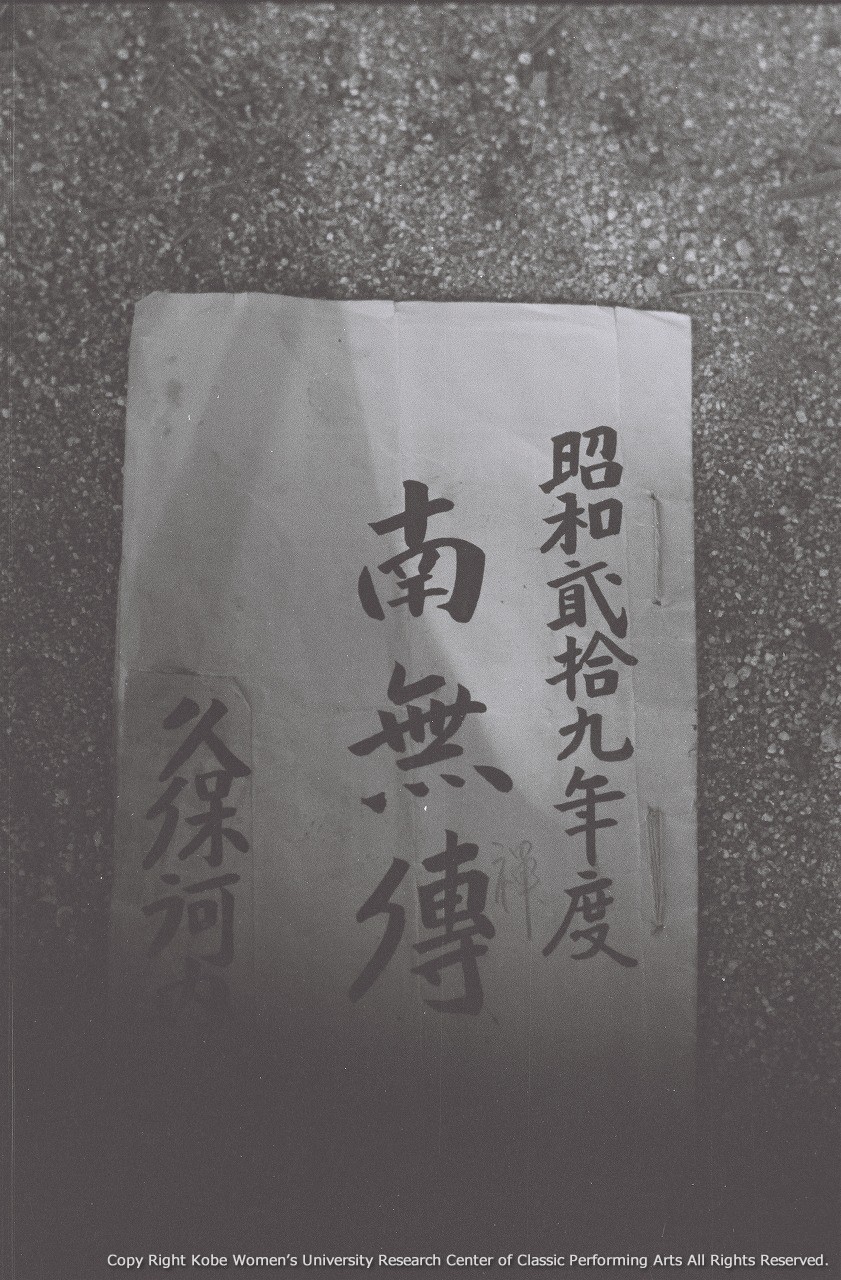 昭和貳拾九年度
禅
南無傳
久保河内
Copy Right Kobe Women's University Research Center of Classic Performing Arts All Rights Reserved.